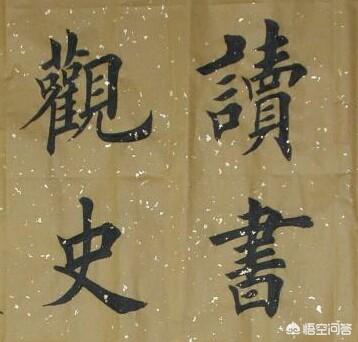 讀書
觀史
悟空问答